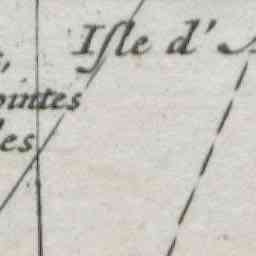 Isle d'
ointes
les